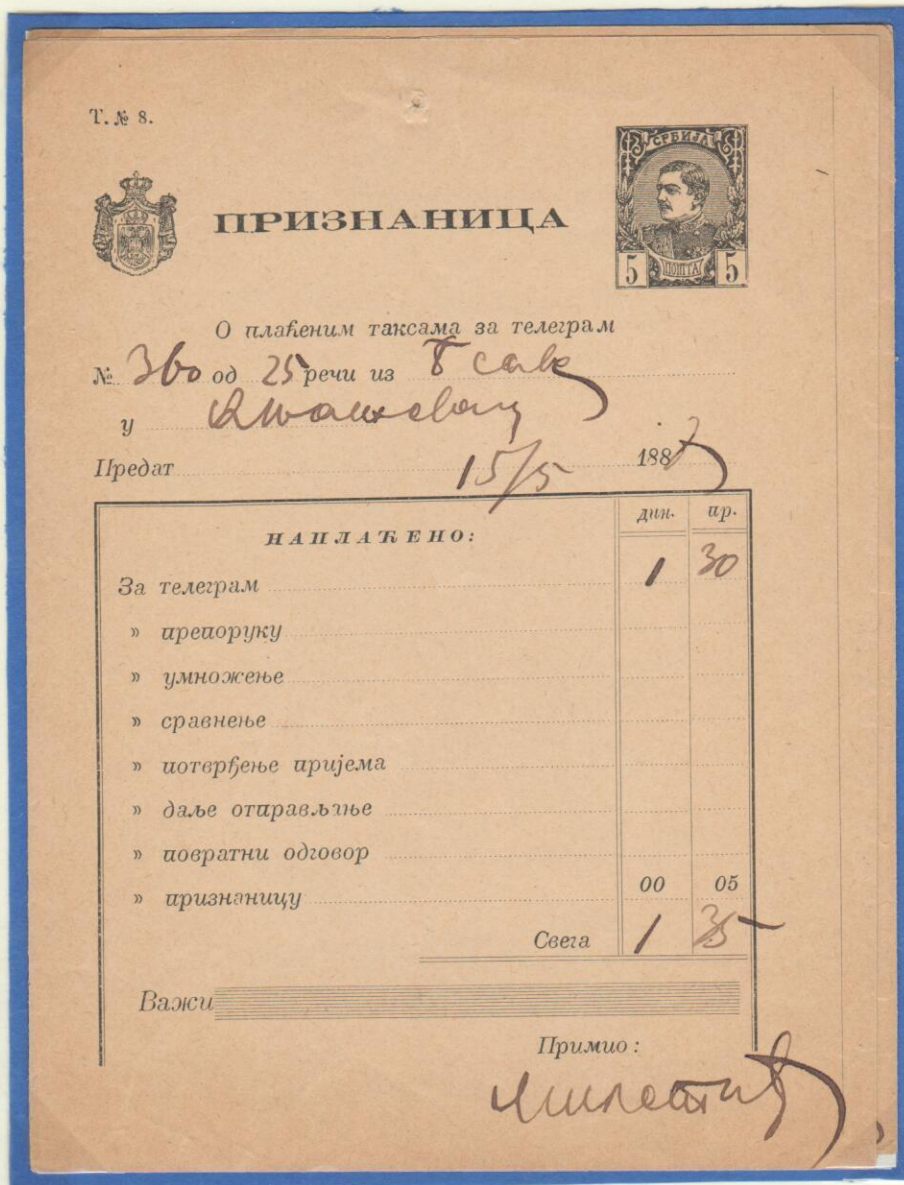 Т. № 8.
СРБИЈА
ПРИЗНАНИЦА
5 ПОШТА 5
О плаћеним таксама за телеграм
№ 360 од 25 речи из
у
Предат 15/5 188
НАПЛАЋЕНО: дин. пр.
За телеграм 1 30
» препоруку
» умножење
» сравнење
» потврђење пријема
» даље отправљање
» повратни одговор
» признаницу 00 05
Свега 1 35
Важи
Примио: